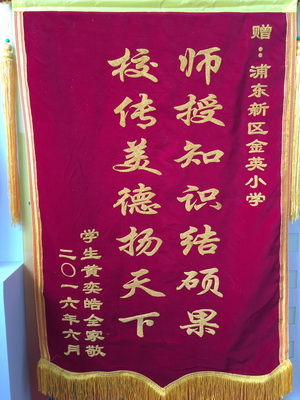 赠：浦东新区金英小学
师授知识结硕果
校传美德扬天下
学生黄奕皓全家敬
二〇一六年六月